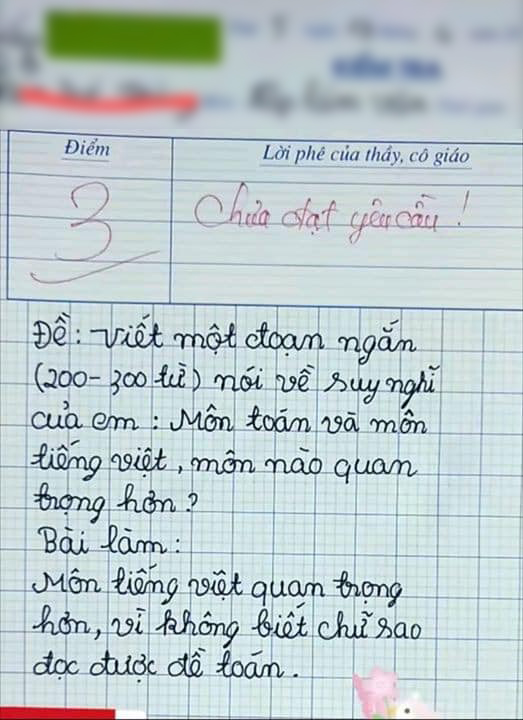 KIỂM TRA
Điểm
Lời phê của thầy, cô giáo
3
Chưa đạt yêu cầu!
Đề: Viết một đoạn ngắn
(200-300 từ) nói về suy nghĩ
của em: Môn toán và môn
tiếng việt, môn nào quan
trọng hơn?
Bài làm:
Môn tiếng việt quan trọng
hơn, vì không biết chữ sao
đọc được đề toán.